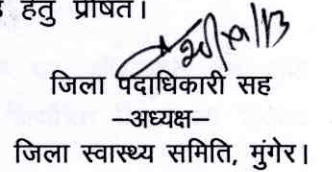 हेतु प्रेषित।
जिला पदाधिकारी सह
–अध्यक्ष–
जिला स्वास्थ्य समिति, मुंगेर।